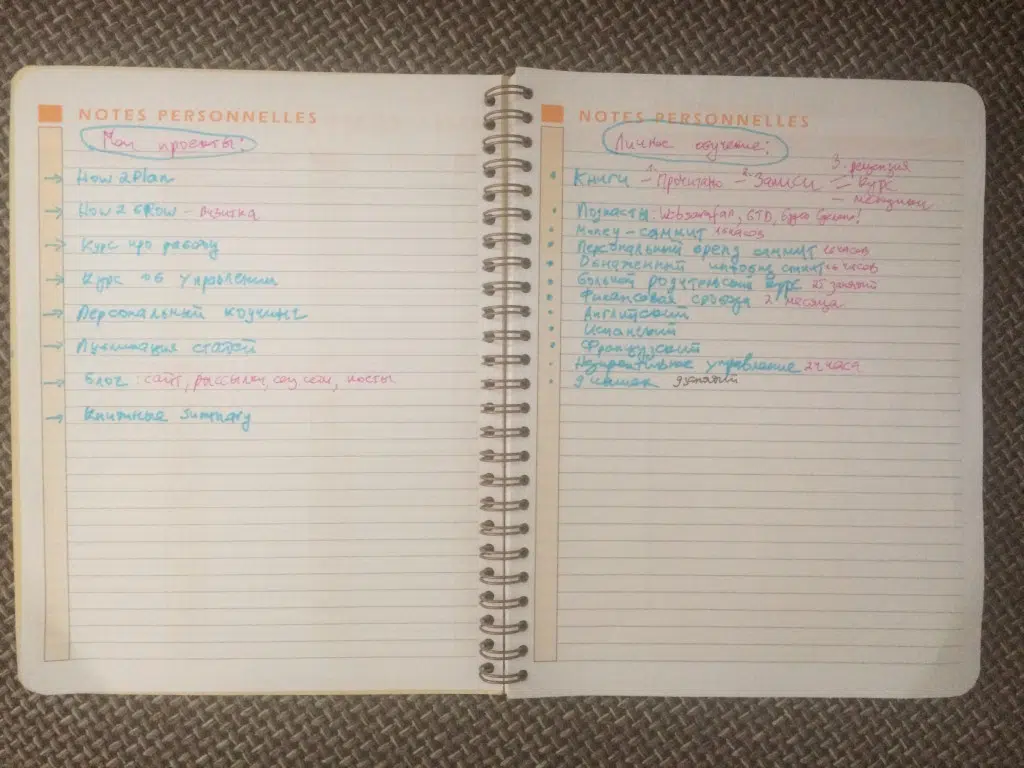 NOTES PERSONNELLES
Мои проекты:
How 2 Plan
How 2 Grow - визитка
Курс про работу
Курс об управлении
Персональный коучинг
Публикация статей
Блог: сайт, рассылки, соц сети, посты
Книжные summary
NOTES PERSONNELLES
Личное обучение:
3. рецензия
Книги - 1. Прочитано - 2. Записи - курс
Подкасты: Websarafan, GTD, Будет сделано!
Money - саммит 16 часов
Персональный бренд саммит часов
Обнаженный саммит 16 часов
Большой родительский курс 25 занятий
Финансовая свобода 2 месяца
Английский
Испанский
Французский
управление 24 часа
9 занятий